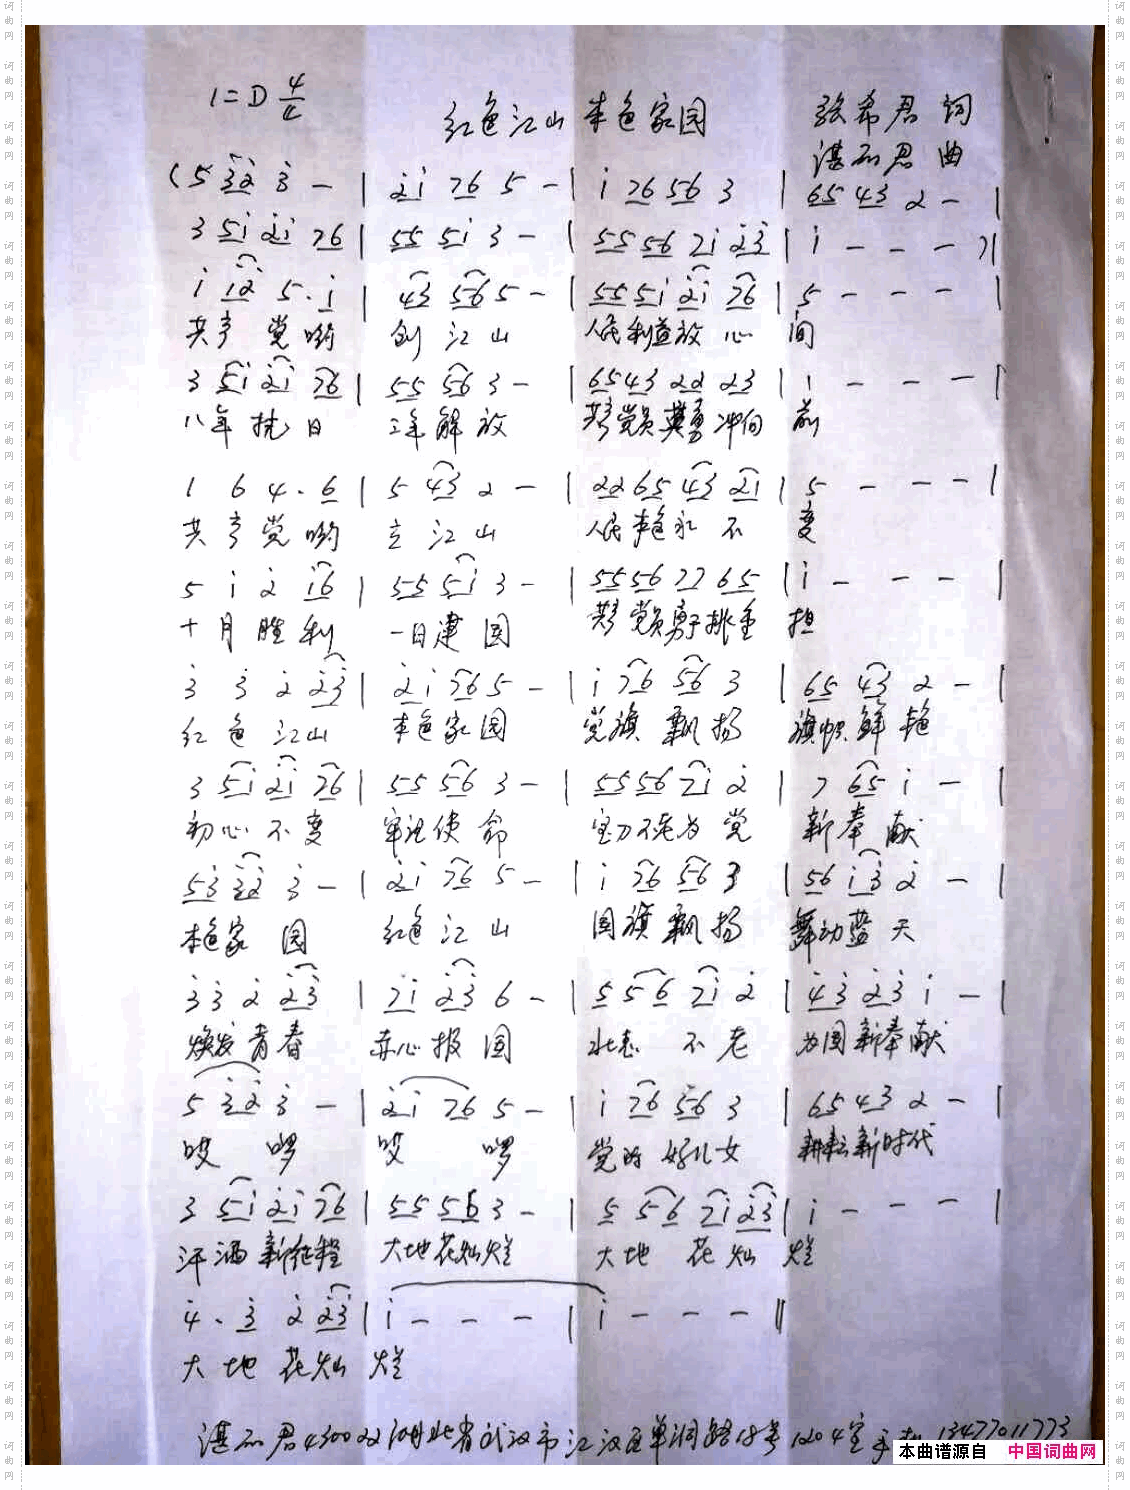 1=D 4/4
红色江山 本色家园
张希君 词
湛而君 曲
(5 3̇2̇ 3̇ - | 2̇1̇ 76 5 - | 1̇ 76 56 3 | 65 43 2 - |
3 51̇ 2̇1̇ 76 | 55 51̇ 3 - | 55 56 71̇ 2̇3̇ | 1̇ - - - )|
1̇ 1̇2̇ 5. 1̇ | 43 56 5 - | 55 51̇ 2̇1̇ 76 | 5 - - - |
共产党哟 创江山 人民利益放心间
3 51̇ 2̇1̇ 76 | 55 56 3 - | 65 43 22 23 | 1 - - - |
八年抗日 三年解放 共产党员英勇冲向前
1 6 4. 6 | 5 43 2 - | 22 65 43 21 | 5 - - - |
共产党哟 立江山 人民本色永不变
5 1̇ 2̇ 1̇6 | 55 51̇ 3 - | 55 56 77 65 | 1̇ - - - |
十月胜利 一日建国 共产党员勇于挑重担
3̇ 3̇ 2̇ 2̇3̇ | 2̇1̇ 76 5 - | 1̇ 76 56 3 | 65 43 2 - |
红色江山 本色家园 党旗飘扬 旗帜鲜艳
3 51̇ 2̇1̇ 76 | 55 56 3 - | 55 56 71̇ 2̇ | 7 65 1̇ - |
初心不变 牢记使命 宝刀不老为党 新奉献
53̇ 3̇2̇ 3̇ - | 2̇1̇ 76 5 - | 1̇ 76 56 3 | 56 1̇3̇ 2̇ - |
本色家园 红色江山 国旗飘扬 舞动蓝天
3̇3̇ 2̇ 2̇3̇ | 71̇ 2̇3̇ 6 - | 5 56 71̇ 2̇ | 4̇3̇ 2̇3̇ 1̇ - |
焕发青春 赤心报国 壮志不老 为国新奉献
5 3̇2̇ 3̇ - | 2̇1̇ 76 5 - | 1̇ 76 56 3 | 65 43 2 - |
哎啰 哎啰 党的好儿女 耕耘新时代
3 51̇ 2̇1̇ 76 | 55 56 3 - | 5 56 71̇ 2̇3̇ | 1̇ - - - |
汗洒新征程 大地花灿烂 大地花灿烂
4̇. 3̇ 2̇ 2̇3̇ | 1̇ - - - | 1̇ - - - ‖
大地花灿烂
湛而君430022湖北省武汉市江汉区单洞路18号1204室手机13477011773
本曲谱源自 中国词曲网